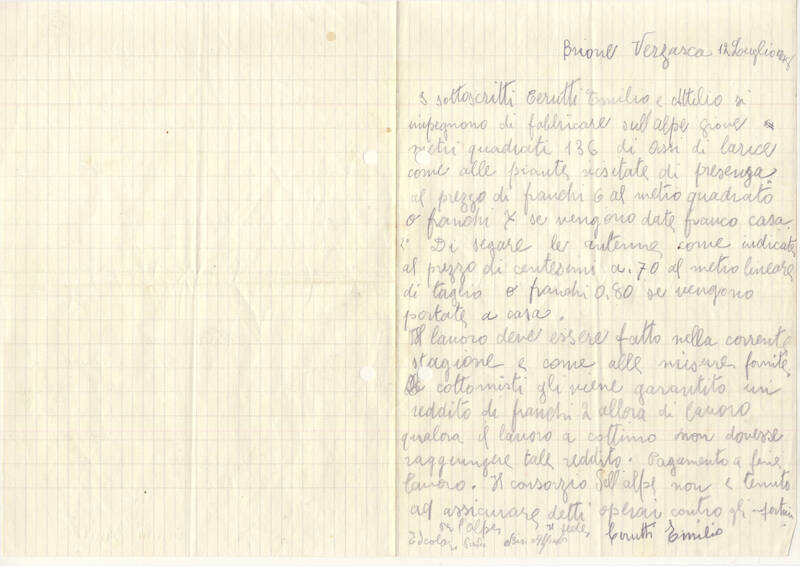 Brione Verzasca 12 Luglio
I sottoscritti Cerutti Emilio e Attilio si
impegnono di fabbricare sull'alpe
metri quadrati 136 di assi di larice
come alle piante visitate di presenza
al prezzo di franchi 6 al metro quadrato
o franchi 7 se vengono date franco casa
2° Di segare le antenne come indicate
al prezzo di centesimi a.70 al metro lineare
di taglio o franchi 0,80 se vengono
portate a casa.
Il lavoro deve essere fatto nella corrente
stagione e come alle misure fornite
cottomisti gli viene garantito un
reddito di franchi 2 allora di lavoro
qualora il lavoro a cottimo non dovesse
raggiungere tale reddito. Pagamento a fine
lavoro. Il consorzio dell'alpe non e tenuto
ad assicurare detti operai contro gli infortuni
per l'alpe in fede
Cerutti Emilio